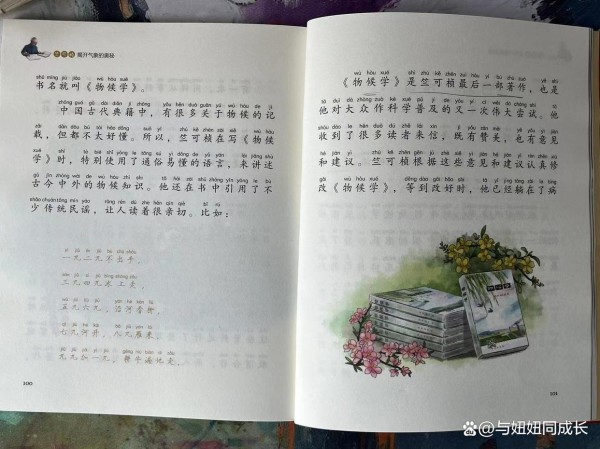 竺可桢 揭开气象的奥秘
书名就叫《物候学》。
中国古代典籍中，有很多关于物候的记
载，但都不太好懂。所以，竺可桢在写《物候
学》时，特别使用了通俗易懂的语言，来讲述
古今中外的物候知识。他还在书中引用了不
少传统民谣，让人读着很亲切。比如：
一九二九不出手，
三九四九冰上走，
五九六九，沿河看柳，
七九河开，八九雁来，
九九加一九，耕牛遍地走。
100
《物候学》是竺可桢最后一部著作，也是
他对大众作科学普及的又一次伟大尝试。他
收到了很多读者来信，既有赞美，也有意见
和建议。竺可桢根据这些意见和建议认真修
改《物候学》，等到改好时，他已经躺在了病
物候学
101
百家号/与妞妞同成长